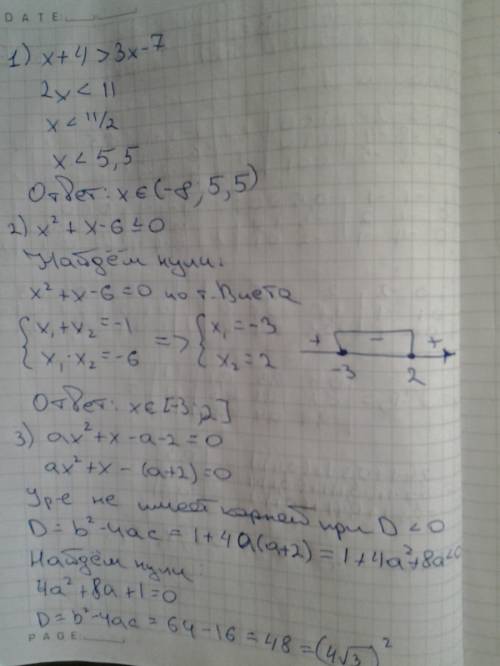 DATE:
1) x+4>3x-7
2x<11
x<11/2
x<5,5
Ответ: x∈(-∞, 5,5)
2) x²+x-6≤0
Найдём нули:
x²+x-6=0 по т. Виета
{x₁+x₂=-1 => {x₁=-3
{x₁·x₂=-6 {x₂=2
+ - +
-3 2
Ответ: x∈[-3;2]
3) ax²+x-a-2=0
ax²+x-(a+2)=0
Ур-е не имеет корней при D<0
D=b²-4ac=1+4a(a+2)=1+4a²+8a<0
Найдём нули:
4a²+8a+1=0
D=b²-4ac=64-16=48=(4√3)²
PAGE: